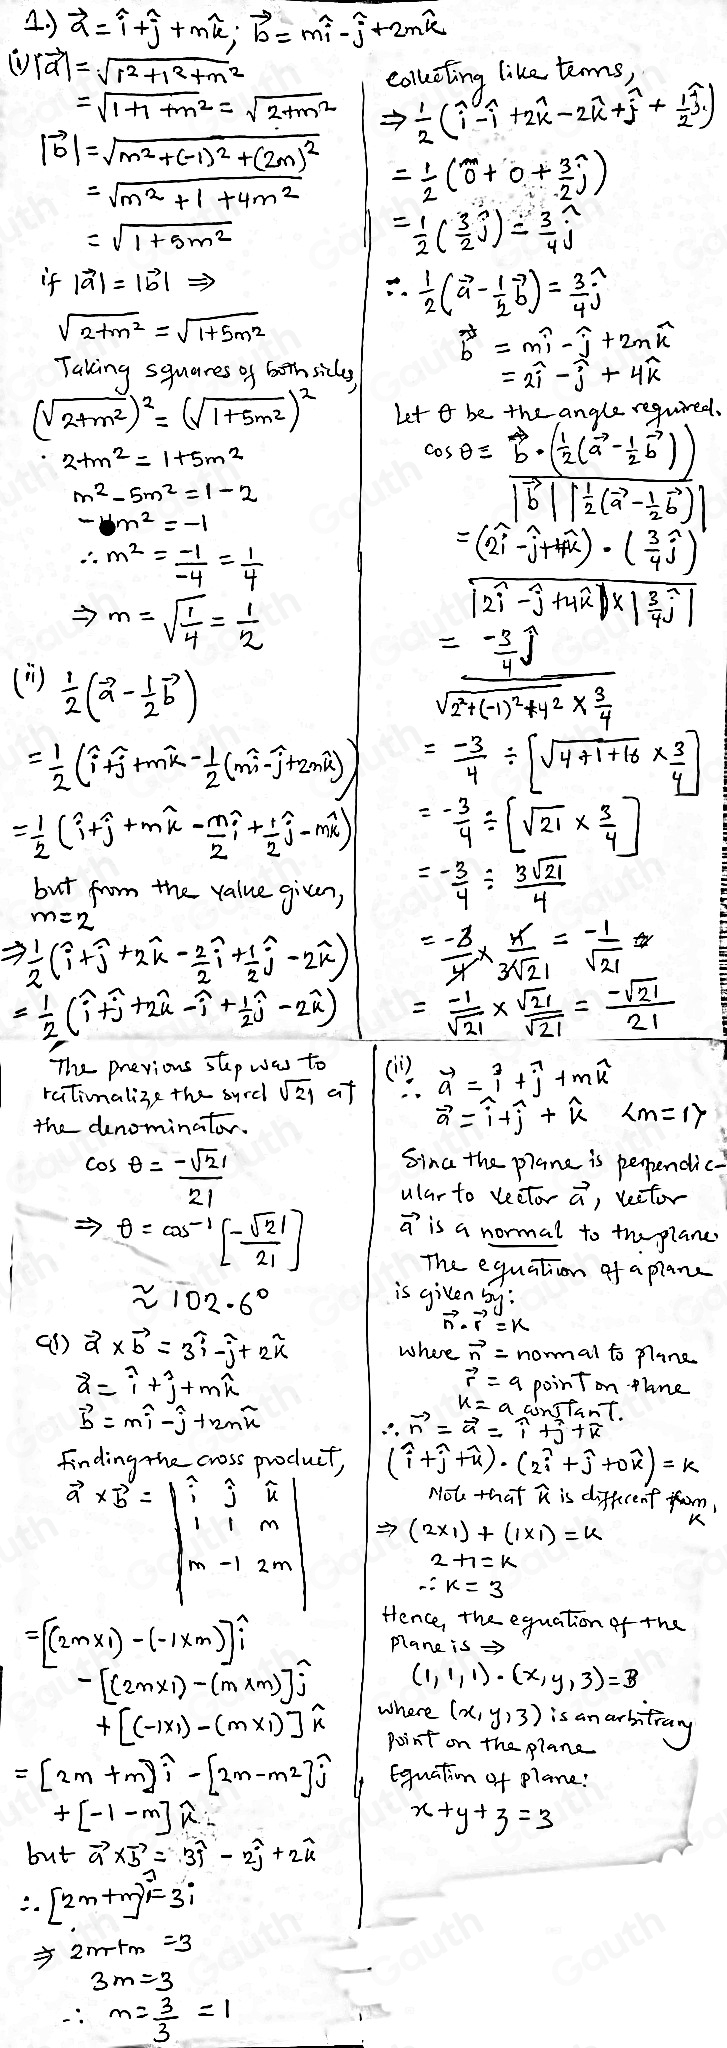 1.) a⃗ = î + ĵ + mk̂; b⃗ = mî - ĵ + 2mk̂
(i) |a⃗| = √(1² + 1² + m²)
= √(1+1+m²) = √(2+m²)
|b⃗| = √(m² + (-1)² + (2m)²)
= √(m² + 1 + 4m²)
= √(1+5m²)
if |a⃗| = |b⃗| ⇒
√(2+m²) = √(1+5m²)
Taking squares of both sides,
(√(2+m²))² = (√(1+5m²))²
2+m² = 1+5m²
m² - 5m² = 1 - 2
-4m² = -1
∴ m² = -1/-4 = 1/4
⇒ m = √(1/4) = 1/2
(ii) 1/2(a⃗ - 1/2 b⃗)
= 1/2(î + ĵ + mk̂ - 1/2(mî - ĵ + 2mk̂))
= 1/2(î + ĵ + mk̂ - m/2 î + 1/2 ĵ - mk̂)
but from the value given,
m=2
⇒ 1/2(î + ĵ + 2k̂ - 2/2 î + 1/2 ĵ - 2k̂)
= 1/2(î + ĵ + 2k̂ - î + 1/2 ĵ - 2k̂)
collecting like terms,
⇒ 1/2(î - î + 2k̂ - 2k̂ + ĵ + 1/2 ĵ)
= 1/2(0 + 0 + 3/2 ĵ)
= 1/2(3/2 ĵ) = 3/4 ĵ
∴ 1/2(a⃗ - 1/2 b⃗) = 3/4 ĵ
b⃗ = mî - ĵ + 2mk̂
= 2î - ĵ + 4k̂
Let θ be the angle required.
cos θ = b⃗ · (1/2(a⃗ - 1/2 b⃗)) / |b⃗| |1/2(a⃗ - 1/2 b⃗)|
= (2î - ĵ + 4k̂) · (3/4 ĵ) / |2î - ĵ + 4k̂| × |3/4 ĵ|
= -3/4 ĵ / √(2² + (-1)² + 4²) × 3/4
= -3/4 ÷ [√(4+1+16) × 3/4]
= -3/4 ÷ [√21 × 3/4]
= -3/4 ÷ 3√21/4
= -3/4 × 4/3√21 = -1/√21
= -1/√21 × √21/√21 = -√21/21
The previous step was to
rationalize the surd √21 at
the denominator.
cos θ = -√21/21
⇒ θ = cos⁻¹[-√21/21]
≈ 102.6°
a⃗ × b⃗ = 3î - ĵ + 2k̂
a⃗ = î + ĵ + mk̂
b⃗ = mî - ĵ + 2mk̂
Finding the cross product,
a⃗ × b⃗ = | î ĵ k̂
1 1 m
m -1 2m |
= [(2m×1) - (-1×m)]î
- [(2m×1) - (m×m)]ĵ
+ [(-1×1) - (m×1)]k̂
= [2m+m]î - [2m-m²]ĵ
+ [-1-m]k̂
but a⃗ × b⃗ = 3î - 2ĵ + 2k̂
∴ [2m+m]î = 3i
⇒ 2m+m = 3
3m = 3
∴ m = 3/3 = 1
(ii) ∴ a⃗ = î + ĵ + mk̂
a⃗ = î + ĵ + k̂ <m=1>
Since the plane is perpendic-
ular to vector a⃗, vector
a⃗ is a normal to the plane
The equation of a plane
is given by:
n⃗·r⃗ = K
where n⃗ = normal to plane
r⃗ = a point on plane
K = a constant.
∴ n⃗ = a⃗ = î + ĵ + k̂
(î + ĵ + k̂)·(2î + ĵ + 0k̂) = K
Note that k̂ is different from,
K
⇒ (2×1) + (1×1) = K
2+1 = K
∴ K = 3
Hence, the equation of the
plane is ⇒
(1,1,1)·(x,y,z) = 3
where (x,y,z) is an arbitrary
point on the plane
Equation of plane:
x+y+z = 3